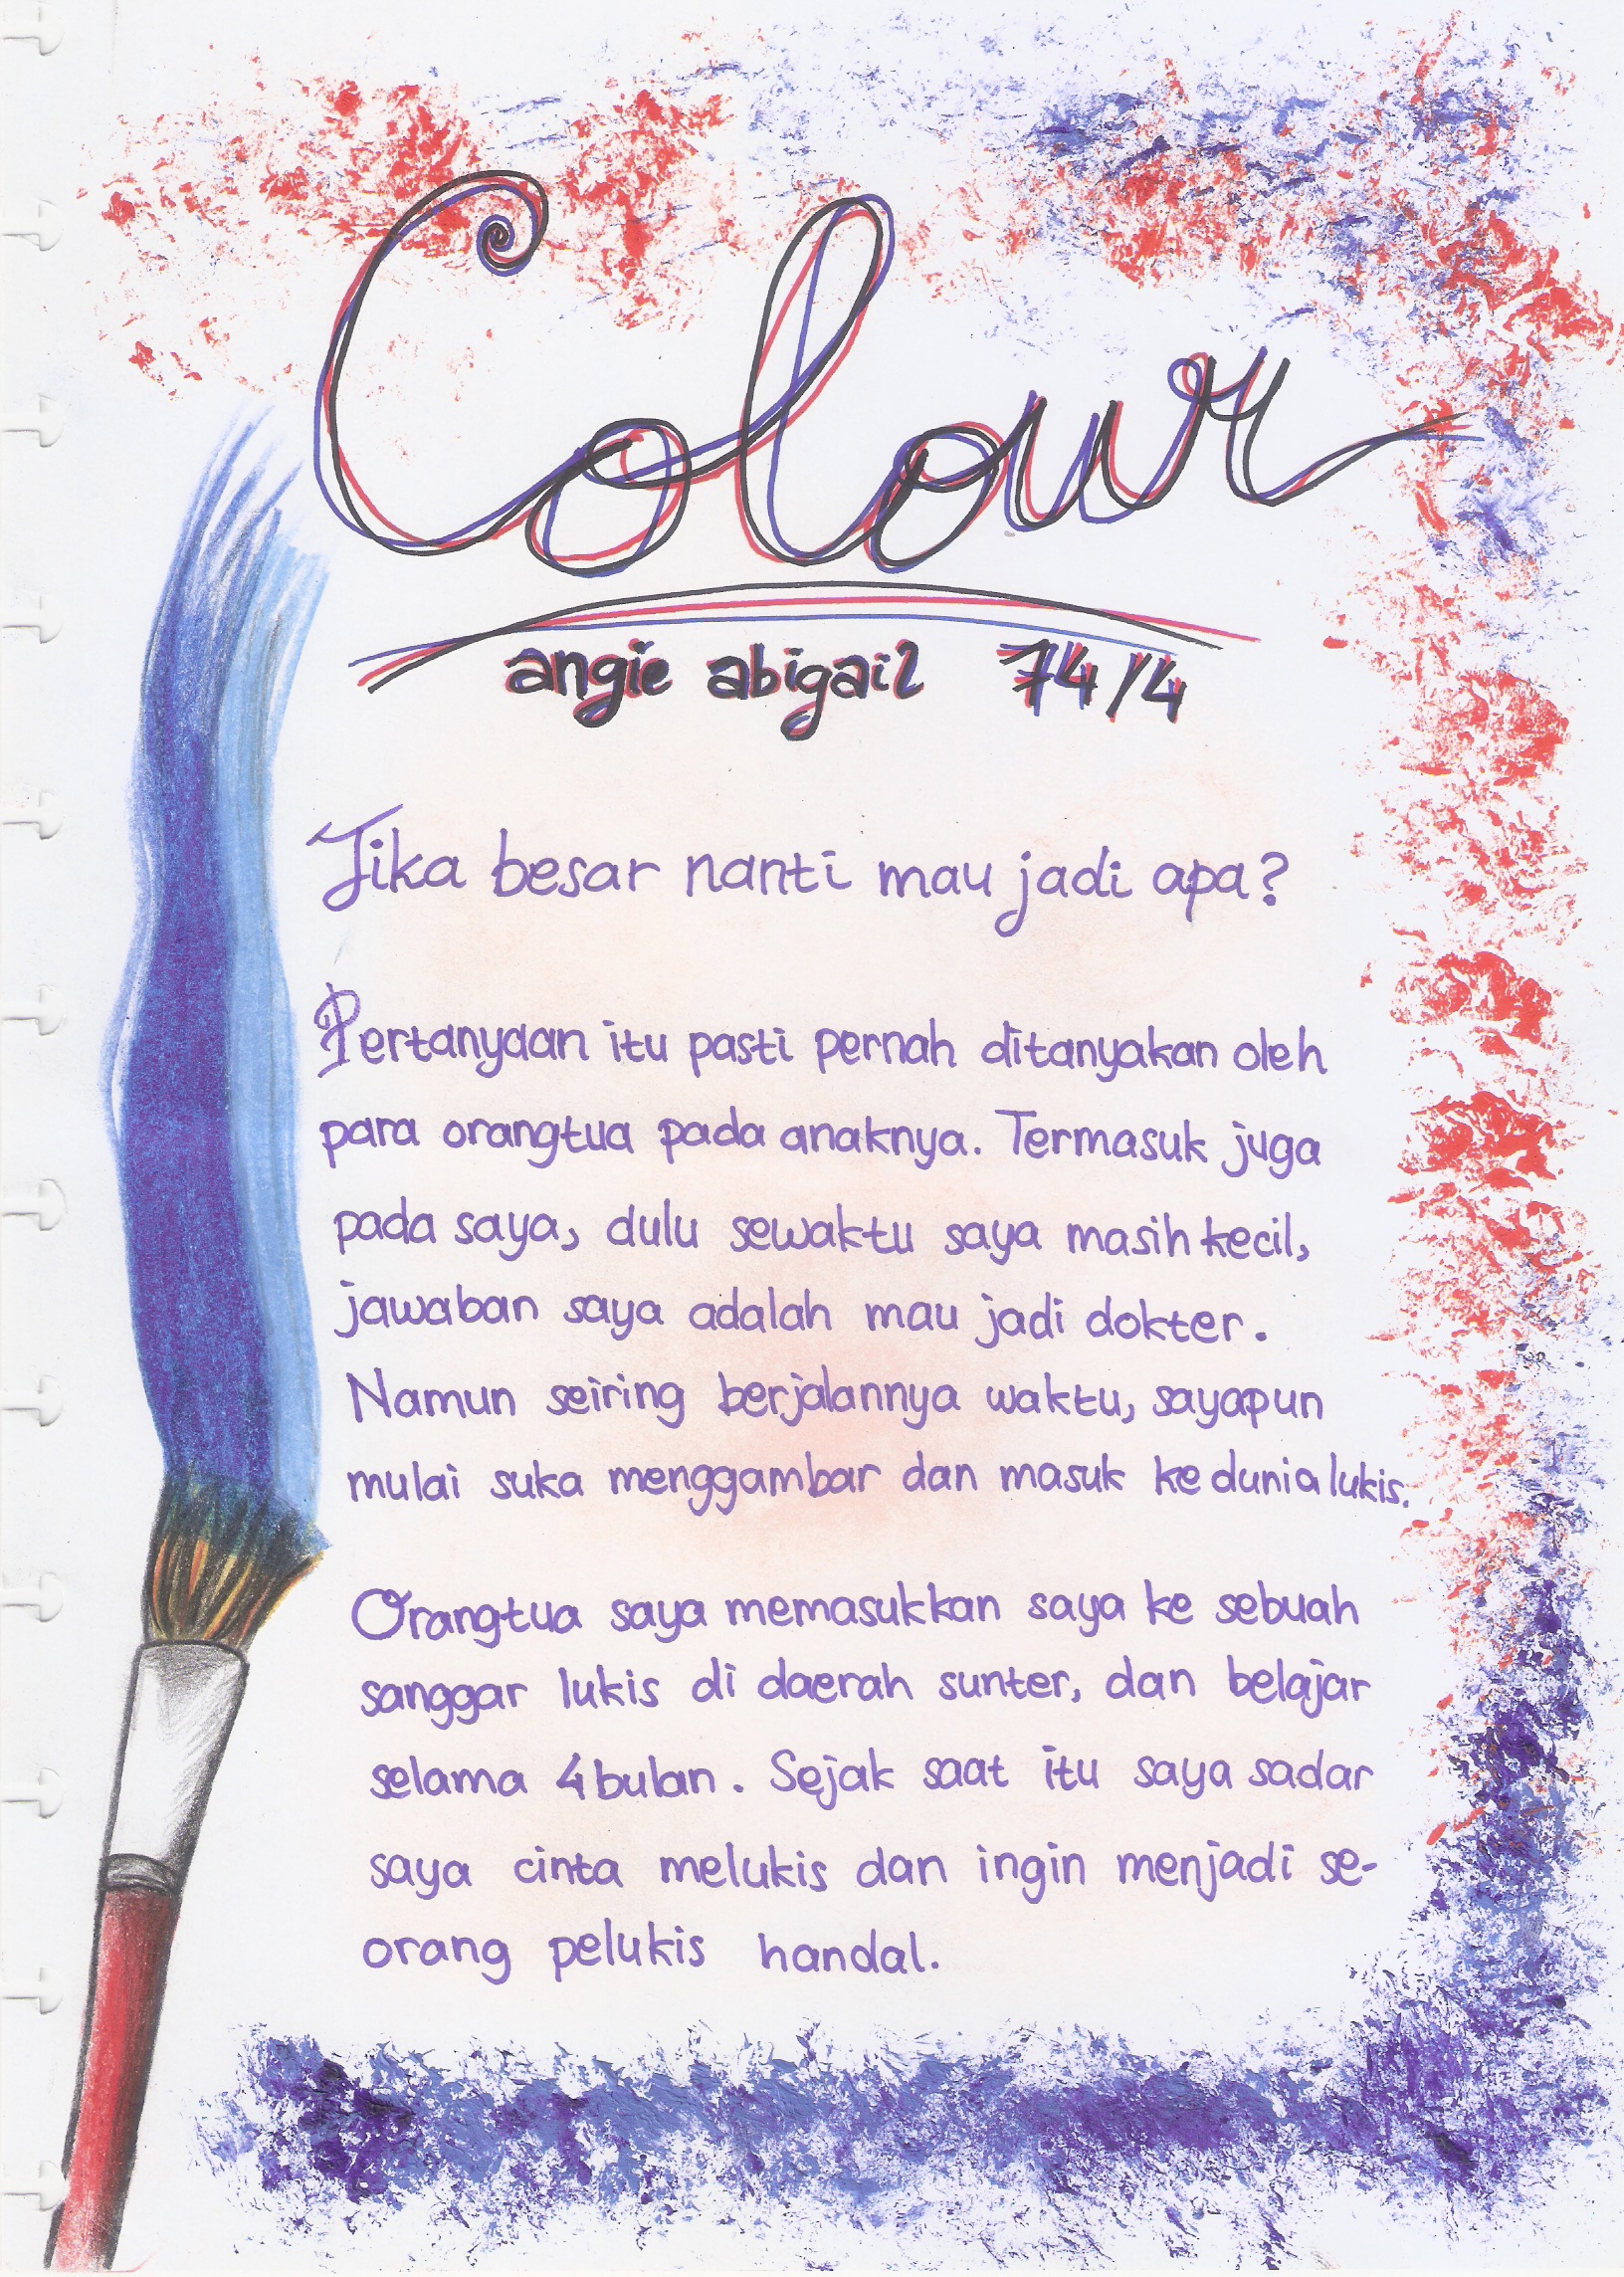 Colour
angie abigail 74/4
Jika besar nanti mau jadi apa?
Pertanyaan itu pasti pernah ditanyakan oleh
para orangtua pada anaknya. Termasuk juga
pada saya, dulu sewaktu saya masih kecil,
jawaban saya adalah mau jadi dokter.
Namun seiring berjalannya waktu, sayapun
mulai suka menggambar dan masuk ke dunia lukis.
Orangtua saya memasukkan saya ke sebuah
sanggar lukis di daerah sunter, dan belajar
selama 4 bulan. Sejak saat itu saya sadar
saya cinta melukis dan ingin menjadi se-
orang pelukis handal.